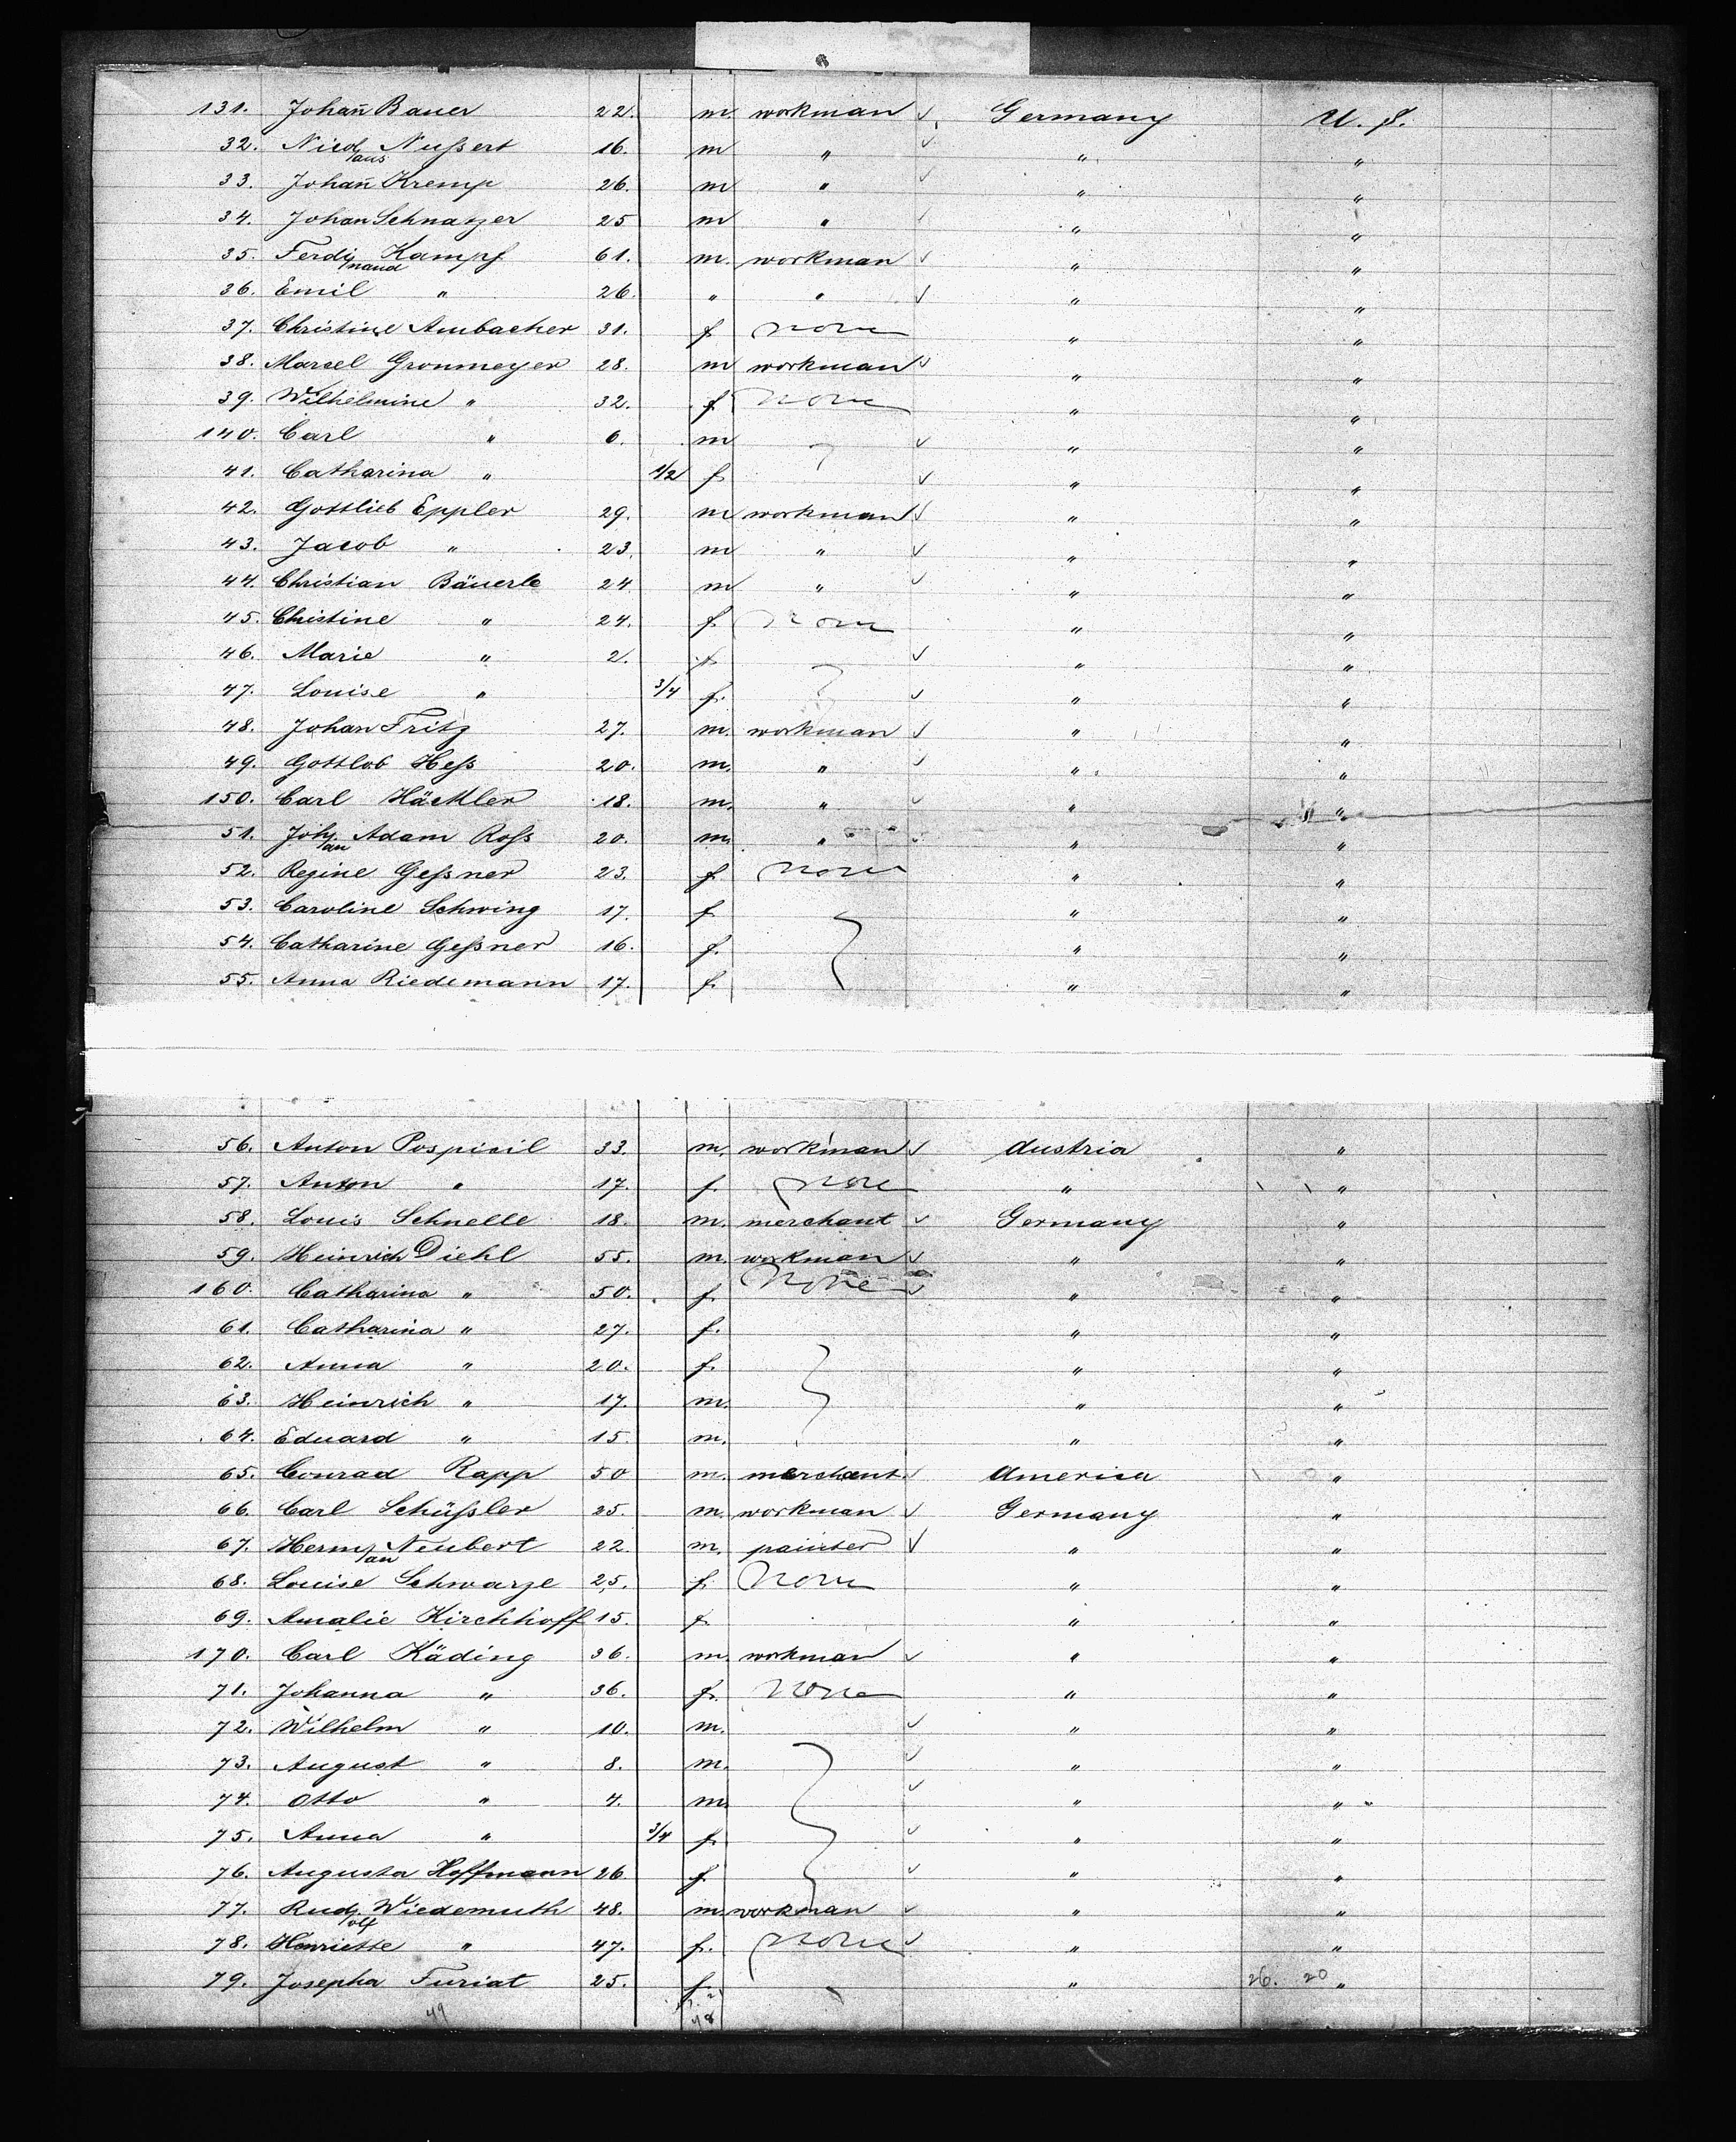 131. Johan̄ Bauer 22. m. workman ✓ Germany U. S.
32. Nicolaus Nußert 16. m " ✓ " "
33. Johan̄ Kremp 26. m " ✓ " "
34. Johan Schnatzer 25 m " ✓ " "
35. Ferdinand Kampf 61. m. workman ✓ " "
36. Emil " 26. " " ✓ " "
37. Christine Ambacher 31. f none " "
38. Marcel Gronmeyer 28. m workman ✓ " "
39. Wilhelmine " 32. f None " "
140. Carl " 6. m ✓ " "
41. Catharina " 1/2 f ✓ " "
42. Gottlieb Eppler 29. m workman ✓ " "
43. Jacob " 23. m " ✓ " "
44. Christian Bäuerle 24 m " ✓ " "
45. Christine " 24. f. none " "
46. Marie " 2. f. ✓ " "
47. Louise " 3/4 f. ✓ " "
48. Johan Fritz 27. m. workman ✓ " "
49. Gottlob Heß 20. m. " ✓ " "
150. Carl Häckler 18. m. " ✓ " "
51. Johan Adam Roß 20. m. " ✓ " "
52. Regine Geßner 23. f none " "
53. Caroline Schwing 17. f. " "
54. Catharine Geßner 16. f. " "
55. Anna Riedemann 17. f. " "
56. Anton Pospisil 33. m. workman ✓ Austria "
57. Anton " 17. f. none " "
58. Louis Schnelle 18. m. merchant ✓ Germany "
59. Heinrich Diehl 55. m. workman ✓ " "
160. Catharina " 50. f. None ✓ " "
61. Catharina " 27. f. " "
62. Anna " 20. f. " "
63. Heinrich " 17. m. " "
64. Eduard " 15. m. " "
65. Conrad Rapp 50 m. merchant ✓ America "
66. Carl Schüßler 25. m. workman ✓ Germany "
67. Herman Neubert 22. m. painter ✓ " "
68. Louise Schwarze 25. f. None " "
69. Amalie Kirchhoff 15. f. " "
170. Carl Käding 36. m. workman ✓ " "
71. Johanna " 36. f. None " "
72. Wilhelm " 10. m. ✓ " "
73. August " 8. m. ✓ " "
74. Otto " 4. m. ✓ " "
75. Anna " 3/4 f. ✓ " "
76. Augusta Hoffmann 26 f. ✓ " "
77. Rudolf Wiedemuth 48. m. workman ✓ " "
78. Henriette " 47. f. none ✓ " "
79. Josepha Furiat 25. f. " 26. 20 "
49 48